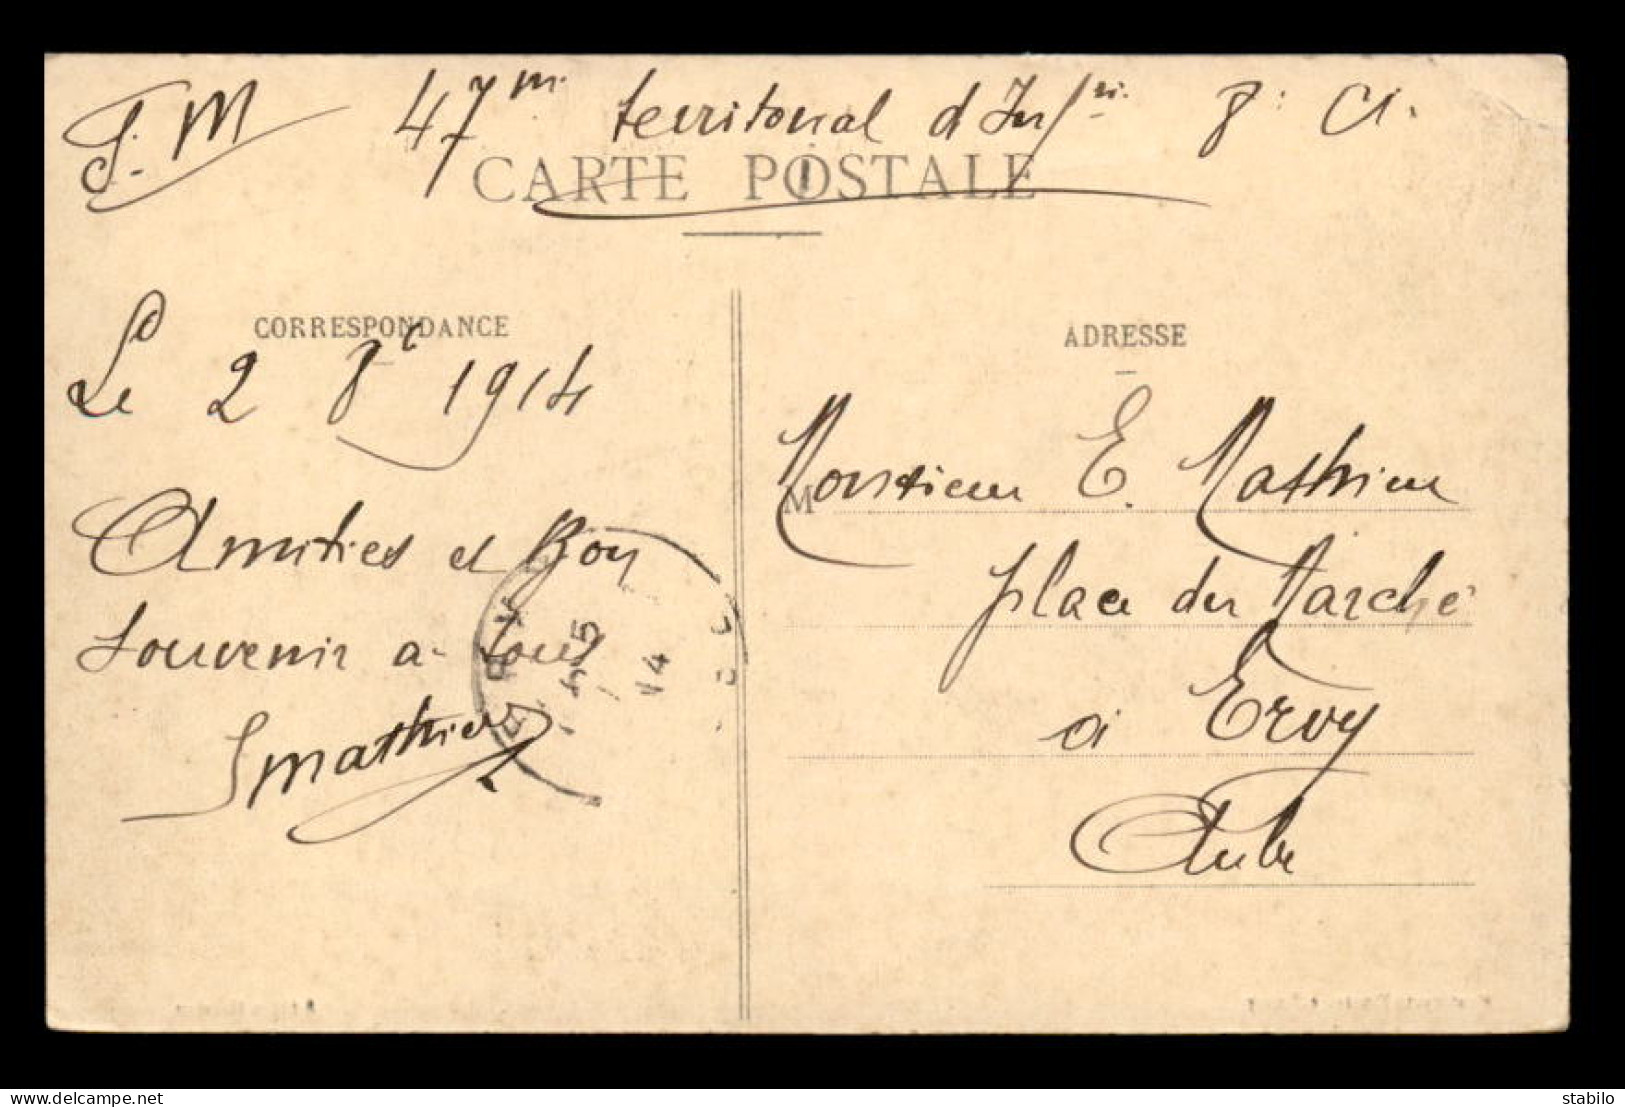 S. M 47me territorial d'Infrie 8e Cie
CARTE POSTALE
CORRESPONDANCE
Le 2 8e 1914
Amitiés et Bon
souvenir a tous
SMathieu
ERVY
5
14
ADRESSE
M
Monsieur E. Mathieu
place du Marché
à Ervy
Aube
delcampe.net
stabilo